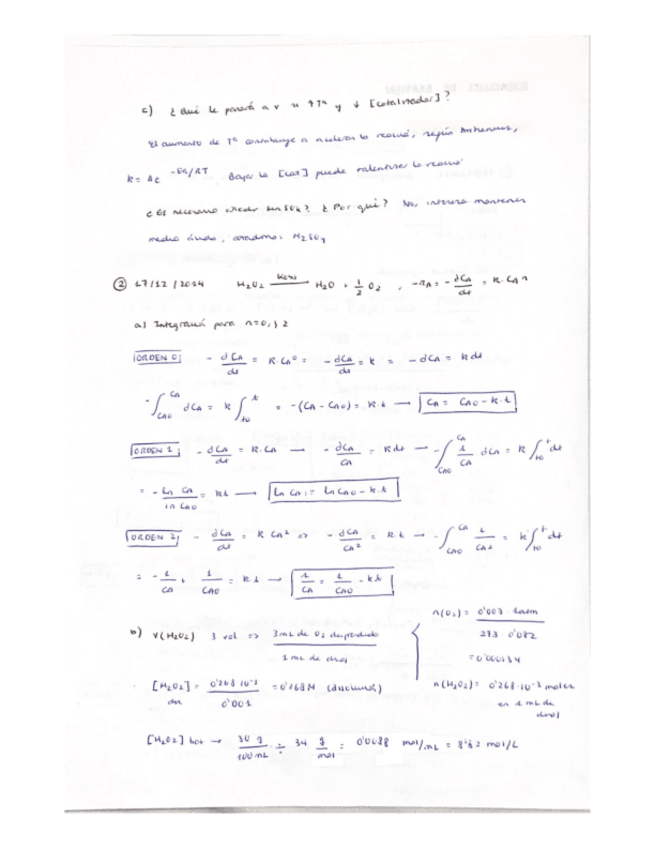 c) ¿Qué le pasará a v si ↑Tª y ↓ [catalizador]?
El aumento de Tª contribuye a acelerar la reacció, según Arrhenius,
k = Ae^-Ea/RT Bajar la [cat] puede ralentizar la reacció
¿Es necesario añadir H₂SO₄? ¿Por qué? No, interesa mantener
medio ácido, H₂SO₄
② 17/12/2014 H₂O₂ → H₂O + 1/2 O₂, -rA = -dCA/dt = K·CA^n
a) Integració para n=0,1,2
ORDEN 0: - dCA/dt = K·CA⁰ = -dCA/dt = k = -dCA = kdt
-∫_CA0^CA dCA = k ∫_t0^t = -(CA - CA0) = K·t → CA = CA0 - k·t
ORDEN 1: - dCA/dt = K·CA → - dCA/CA = Kdt → -∫_CA0^CA 1/CA dCA = K ∫_t0^t dt
= - ln CA/ln CA0 = kt → Ln CA = Ln CA0 - k·t
ORDEN 2: - dCA/dt = K CA² => - dCA/CA² = K t → -∫_CA0^CA 1/CA² = k∫_t0^t dt
= - 1/CA + 1/CA0 = K t → 1/CA = 1/CA0 - kt
b) V(H₂O₂) 3 vol => 3mL de O₂ / 1 mL de
n(O₂) = 0'003 · 1atm / 293 · 0'082
= 0'000134
[H₂O₂] = 0'268·10⁻³ / 0'001 = 0'268M
n(H₂O₂) = 0'268·10⁻³ moles
en 1 mL de
[H₂O₂] bot → 30 g/100 mL ÷ 34 g/mol = 0'0088 mol/mL = 8'82 mol/L